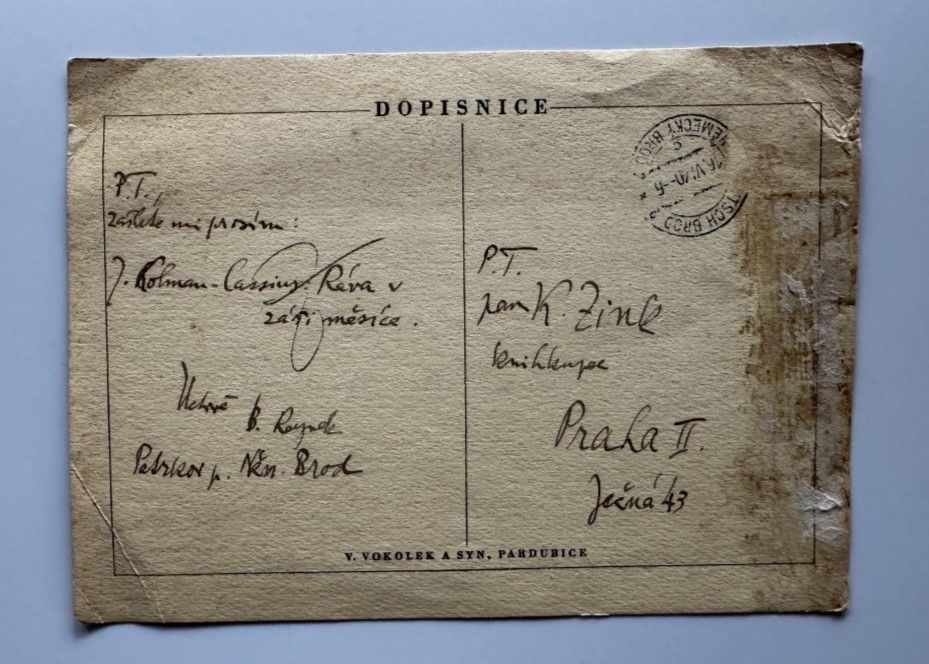 DOPISNICE
P.T.,
zašlete mi prosím:
J. Kolman-Cassius: Réva v
září měsíce.
Uctivě
B. Reynek
Petrkov p. Něm. Brod
NĚMECKÝ BROD
TSCH BROD
P.T.
pan K. Zink
knihkupec
Praha II.
Ječná 43
V. VOKOLEK A SYN, PARDUBICE